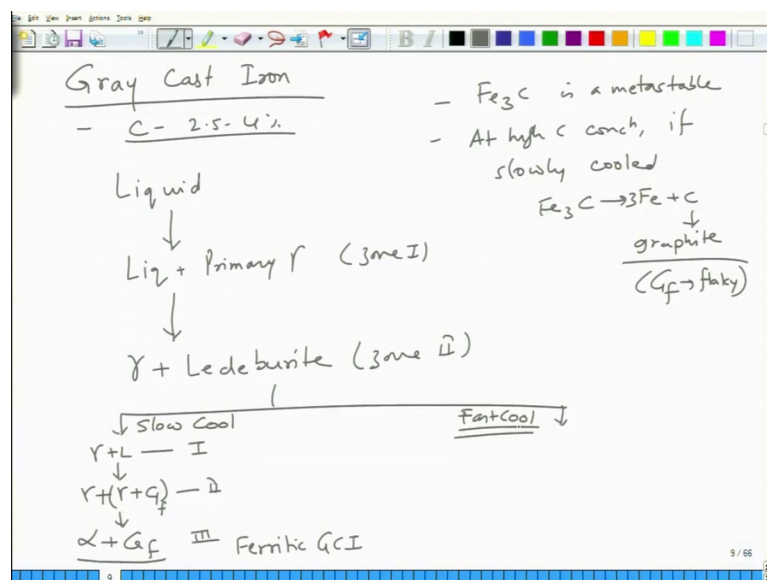 File Edit View Insert Actions Tools Help
Gray Cast Iron
- C - 2.5 - 4%
Liquid
↓
Liq + Primary γ (zone I)
↓
γ + Ledeburite (zone II)
↓ Slow Cool
γ+L — I
↓
γ+(γ+G_f) — II
↓
α+G_f III Ferritic GCI
Fast Cool ↓
- Fe3C is a metastable
- At high C concn, if
slowly cooled
Fe3C → 3Fe + C
↓
graphite
(G_f → flaky)
9 / 66
9